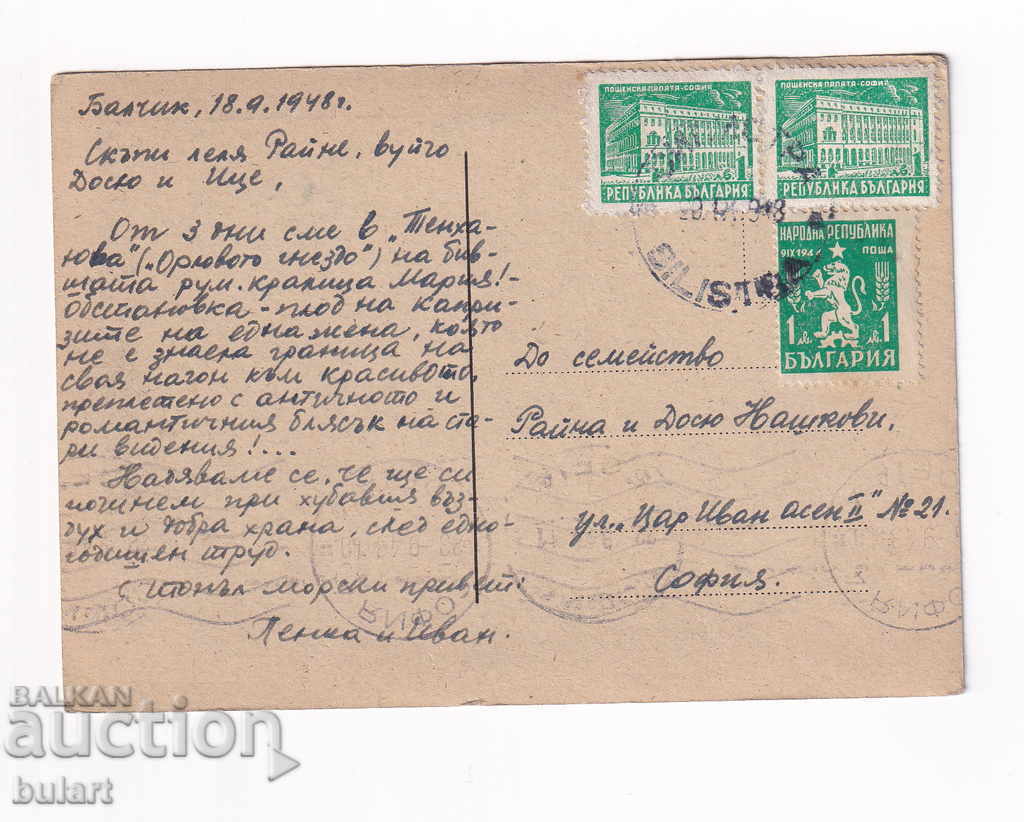 Балчик, 18.9.1948г.
Скъпи леля Райне, вуйчо
Досю и Ице,
От 3 дни сме в „Тенха-
юва" („Орловото гнездо") на бив-
шата рум. кралица Мария! -
Обстановка - плод на капри-
зите на една жена, която
не е знаела граница на
своя нагон към красивото,
преплетено с античното и
романтичния блясък на ста-
ри видения!...
Надяваме се, че ще си
починем при хубавия въз-
дух и добра храна, след едно-
годишен труд.
С топъл морски привет:
Пенка и Иван.
ПОЩЕНСКА ПАЛАТА-СОФИЯ
РЕПУБЛИКА БЪЛГАРИЯ
ПОЩЕНСКА ПАЛАТА-СОФИЯ
РЕПУБЛИКА БЪЛГАРИЯ
НАРОДНА РЕПУБЛИКА
9IX1944 ПОЩА
1 лв. лв. 1
БЪЛГАРИЯ
SILISTRA
До семейство
Райна и Досю Нашкови,
ул. „Цар Иван Асен II" № 21.
София.
СОФИЯ
BALKAN
auction
bulart